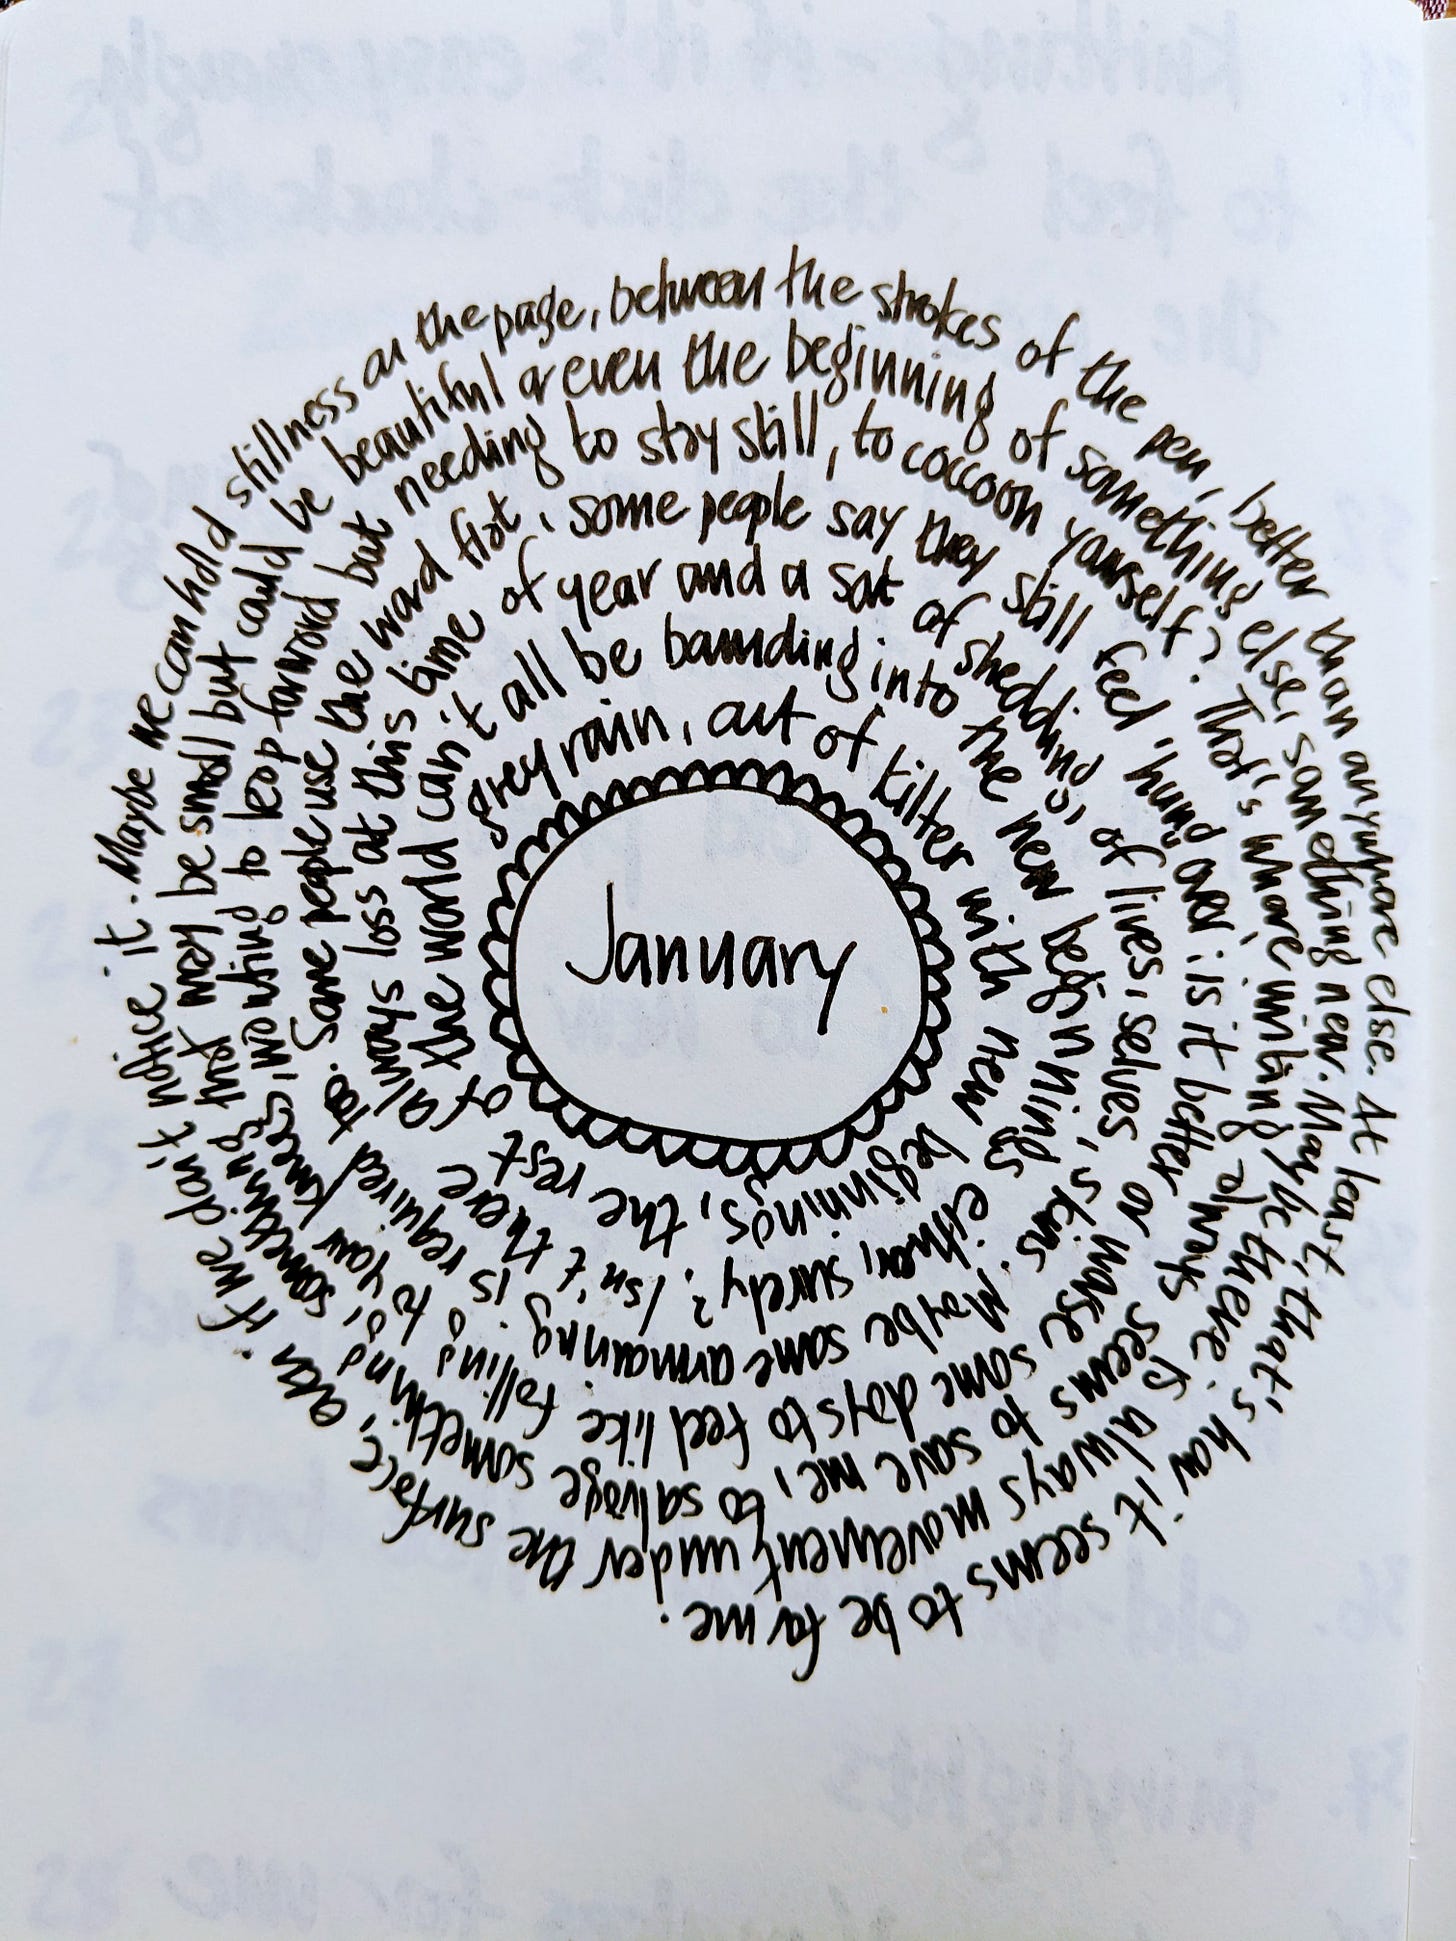 January
grey rain, out of kilter with new beginnings, the rest of
the world can't all be bounding into the new beginnings either, surely? Isn't there
always loss at this time of year and a sort of shedding, of lives, selves, skins. Maybe some armouring is required too.
Some people use the word flat, some people say they still feel "hung over: is it better or worse some days to feel like falling to your knees,
wanting to leap forward but needing to stay still, to coccoon yourself? That's where writing always seems to save me, to salvage something, something
that may be small but could be beautiful or even the beginning of something else, something new. Maybe there is always movement under the surface, even if we don't notice it.
Maybe we can hold stillness on the page, between the strokes of the pen, better than anywhere else. At least, that's how it seems to be for me.